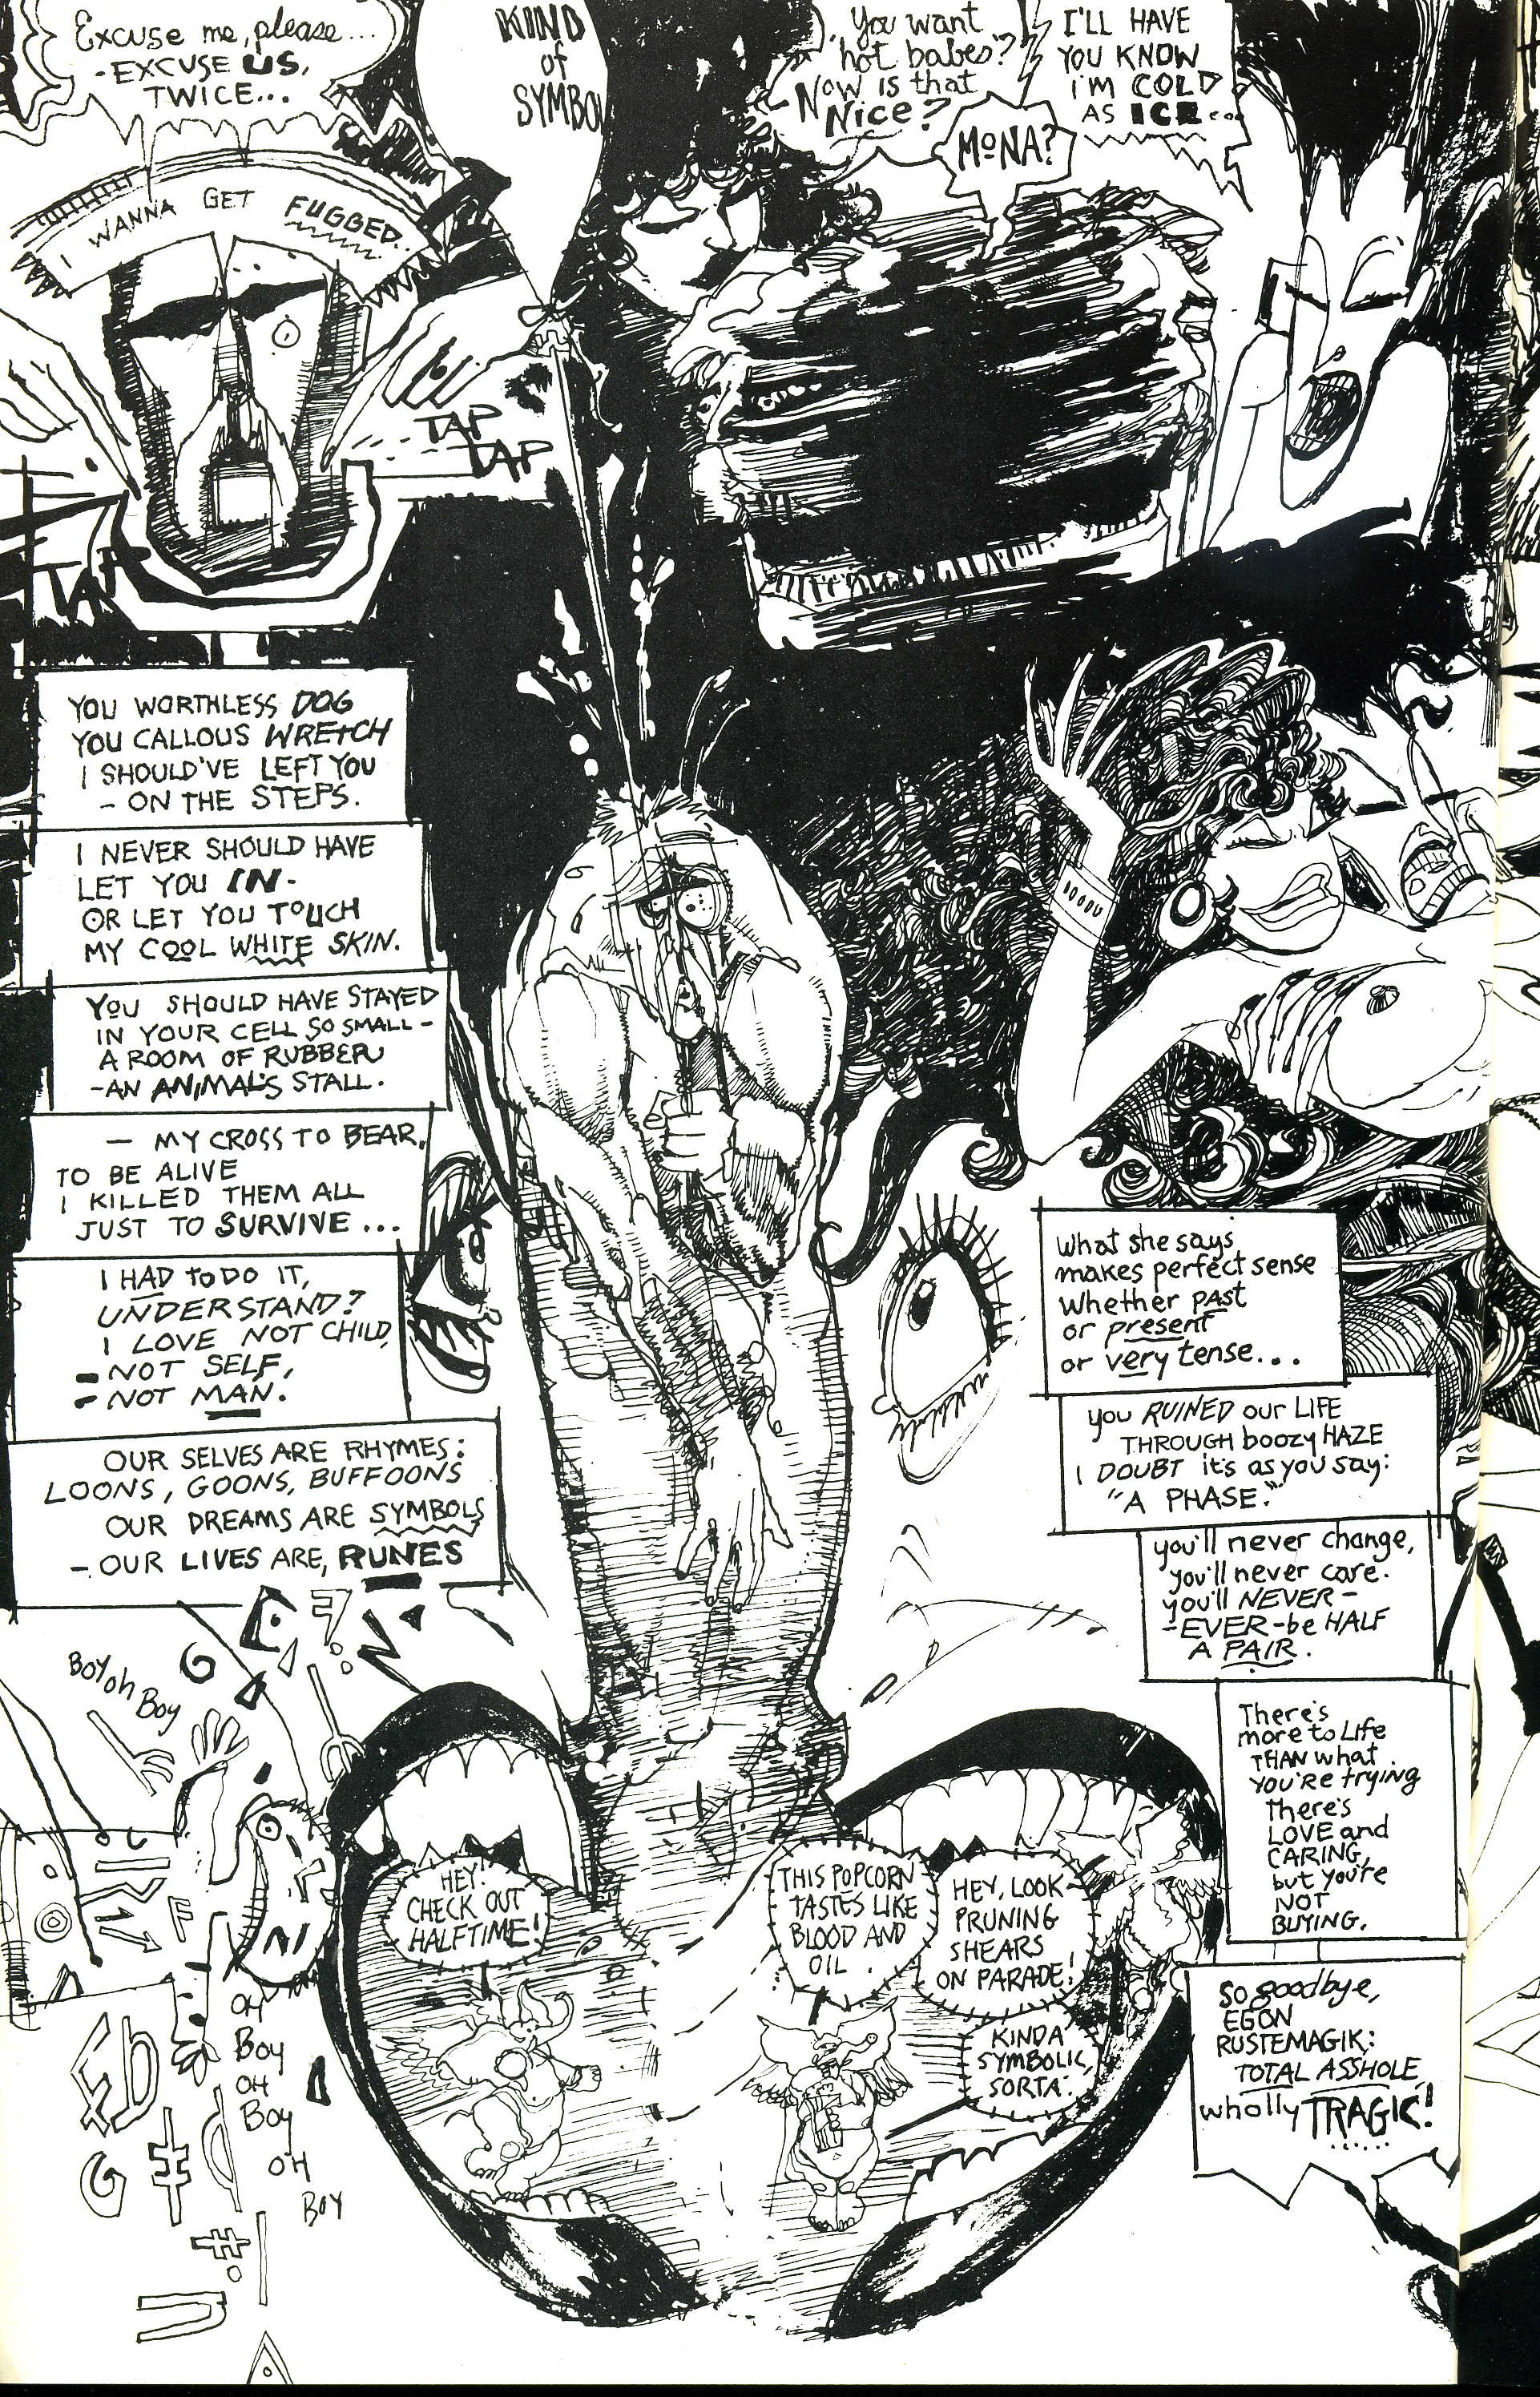 Excuse me, please...
-EXCUSE US,
TWICE...
KIND
of
SYMBOL
You want
hot babes?
Now is that
Nice?
MONA?
I'LL HAVE
YOU KNOW
I'M COLD
AS ICE...
I WANNA GET FUGBED...
TAP
TAP
TAP
YOU WORTHLESS DOG
YOU CALLOUS WRETCH
I SHOULD'VE LEFT YOU
- ON THE STEPS.
I NEVER SHOULD HAVE
LET YOU IN-
OR LET YOU TOUCH
MY COOL WHITE SKIN.
YOU SHOULD HAVE STAYED
IN YOUR CELL SO SMALL-
A ROOM OF RUBBER
-AN ANIMAL'S STALL.
- MY CROSS TO BEAR,
TO BE ALIVE
I KILLED THEM ALL
JUST TO SURVIVE...
I HAD TO DO IT,
UNDERSTAND?
I LOVE NOT CHILD,
-NOT SELF,
-NOT MAN.
OUR SELVES ARE RHYMES:
LOONS, GOONS, BUFFOONS
OUR DREAMS ARE SYMBOLS
-OUR LIVES ARE, RUNES
What she says
makes perfect sense
whether past
or present
or very tense...
you RUINED our LIFE
THROUGH boozy HAZE
I DOUBT it's as you say:
"A PHASE."
you'll never change,
you'll never care.
you'll NEVER-
-EVER-be HALF
A PAIR.
There's
more to Life
THAN what
YOU'Re trying
There's
LOVE and
CARING,
but you're
NOT
BUYING.
So goodbye,
EGON
RUSTEMAGIK:
TOTAL ASSHOLE,
wholly TRAGIC!
Boy oh
Boy
HEY!
CHECK OUT
HALFTIME!
THIS POPCORN
TASTES LIKE
BLOOD AND
OIL.
HEY, LOOK-
PRUNING
SHEARS
ON PARADE!
KINDA
SYMBOLIC,
SORTA.
OH
Boy
OH
Boy
OH
BOY